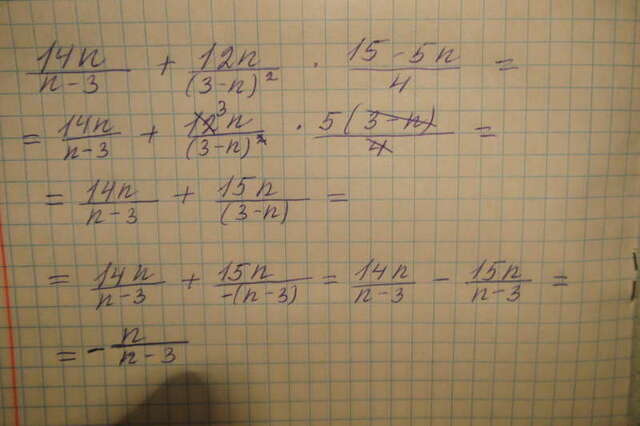 14n/(n-3) + 12n/(3-n)² · (15-5n)/4 =
= 14n/(n-3) + 12³n/(3-n)² · 5(3-n)/4 =
= 14n/(n-3) + 15n/(3-n) =
= 14n/(n-3) + 15n/-(n-3) = 14n/(n-3) - 15n/(n-3) =
= - n/(n-3)